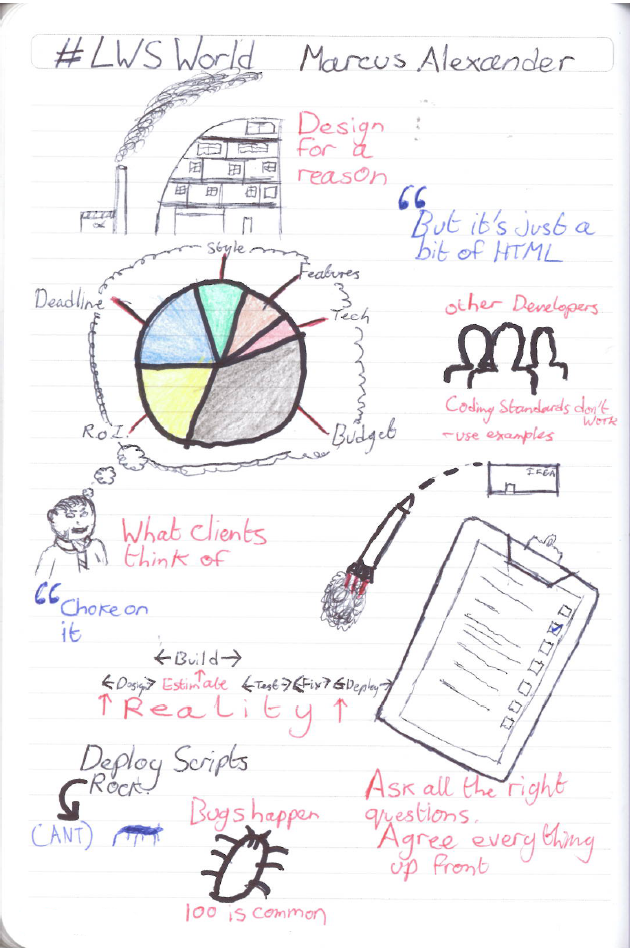 #LWS World Marcus Alexander
Design
for a
reason
“ But it's just a
bit of HTML
Style
Features
Deadline
Tech
R.O.I.
Budget
other Developers
Coding Standards don't
work
- use examples
IKEA
What clients
think of
“ Choke on
it
← Build →
← Design → Estimate ← Test → ← Fix → ← Deploy →
↑ Reality ↑
Deploy Scripts
Rock.
(ANT)
Bugs happen
100 is common
Ask all the right
questions.
Agree everything
up front